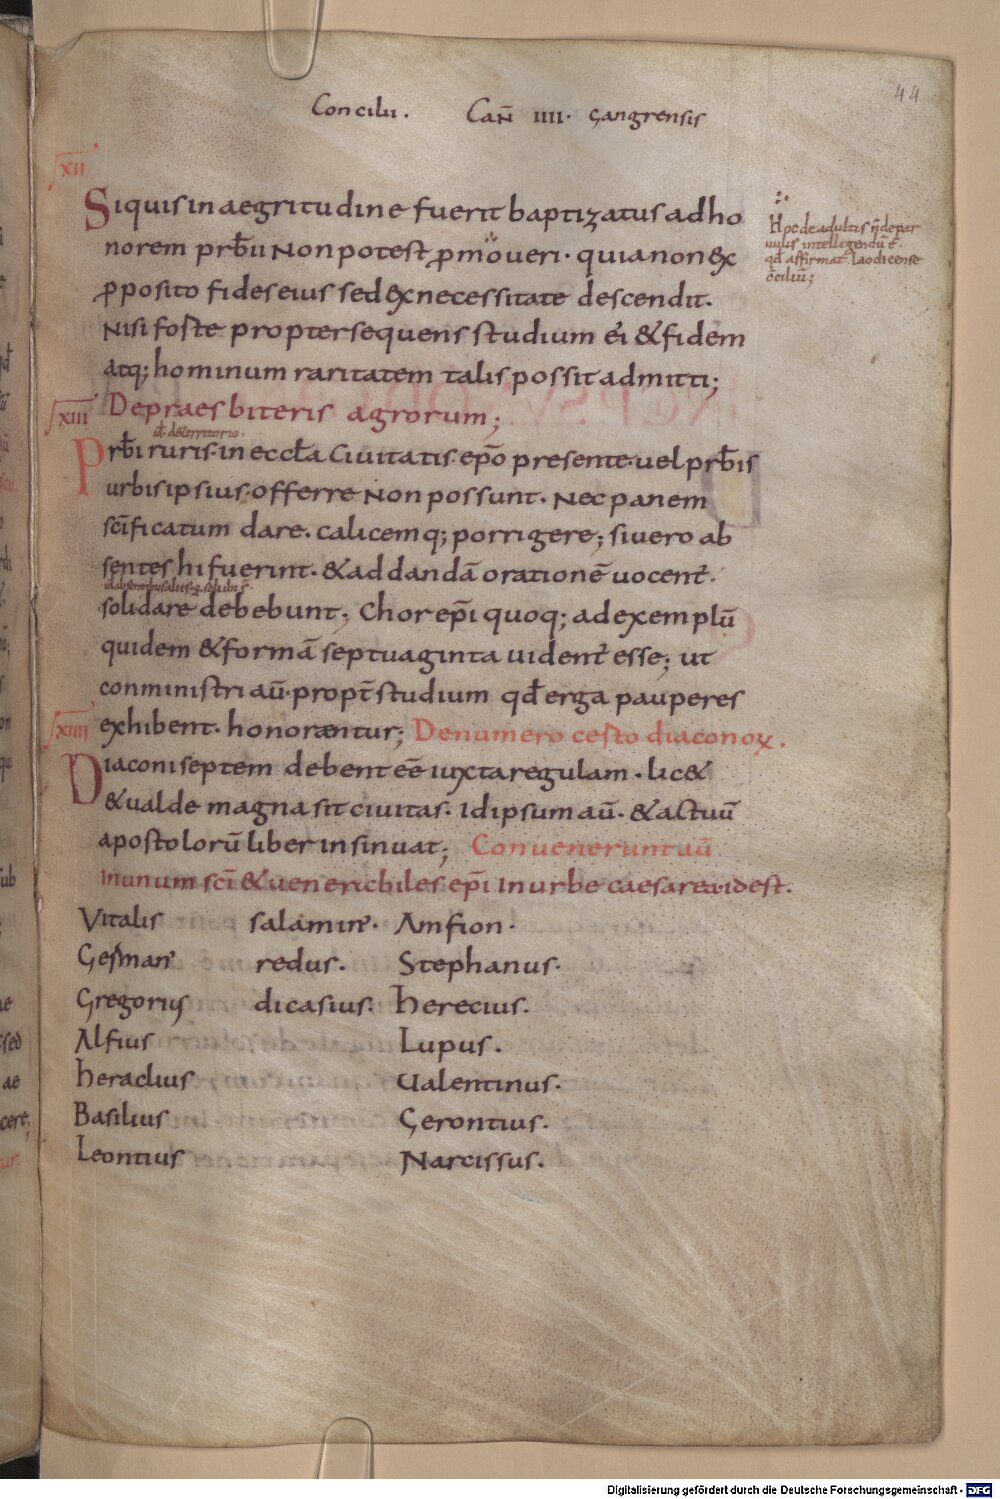 44
Concilii. Can̄ IIII. Gangrensis
XII
Siquis in aegritudine fuerit baptizatus ad ho
norem prb̄ii Non potest p̄moueri. quia non ex
p̄posito fides eius sed ex necessitate descendit.
Nisi foste propter sequens studium ei & fidem
atq; hominum raritatem talis possit admitti;
Hoc de adultis n̄ de par
uulis intellegendū ē.
qd̄ affirmat laodicense
c̄ciliū;
XIII De praesbiteris agrorum;
id̄. de territorio.
Prb̄i ruris in eccl̄a Ciuitatis ep̄o presente uel prb̄is
urbis ipsius offerre Non possunt. Nec panem
sc̄ificatum dare. calicemq; porrigere; si uero ab
sentes hi fuerint. & ad dandā orationē uocent̄.
soli dare debebunt; Chorep̄i quoq; ad exemplū
quidem & formā septuaginta uident̄ esse; ut
conministri au̅. propt̄ studium qd̄ erga pauperes
exhibent. honorantur; De numero cesto diaconoꝝ.
XIIII
Diaconi septem debent eē iuxta regulam. lic&
& ualde magna sit ciuitas. Id ipsum au̅. & actuū
apostolorū liber insinuat; Conuenerunt au̅
in unum sc̄i & uenerabiles ep̄i in urbe caesarea. id est.
Vitalis salamin̄. Amfion.
German' redus. Stephanus.
Gregorius dicasius. herecius.
Alfius Lupus.
heraclius Ualentinus.
Basilius Gerontius.
Leontius Narcissus.
Digitalisierung gefördert durch die Deutsche Forschungsgemeinschaft - DFG